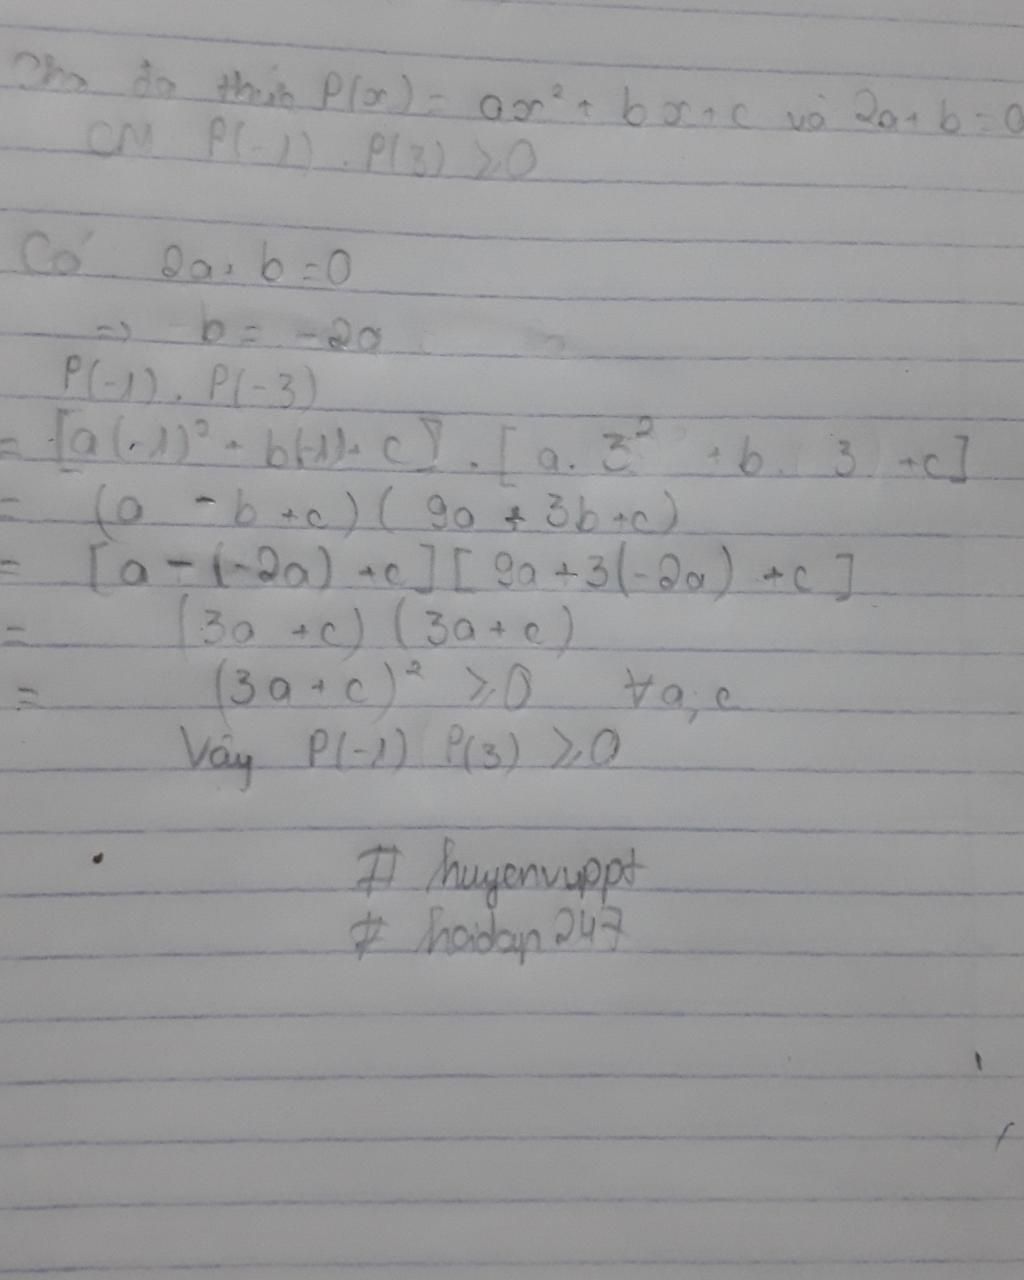 Cho đa thức P(x) = ax² + bx + c và 2a + b = 0
CM P(-1) . P(3) ≥ 0
Có 2a + b = 0
=> b = -2a
P(-1) . P(-3)
= [a(-1)² + b(-1) + c] . [a . 3² + b . 3 + c]
= (a - b + c) ( 9a + 3b + c)
= [a - (-2a) + c] [9a + 3(-2a) + c]
= (3a + c) (3a + c)
= (3a + c)² ≥ 0 ∀ a, c
Vây P(-1) P(3) ≥ 0
# huyenvuppt
# hoidap247